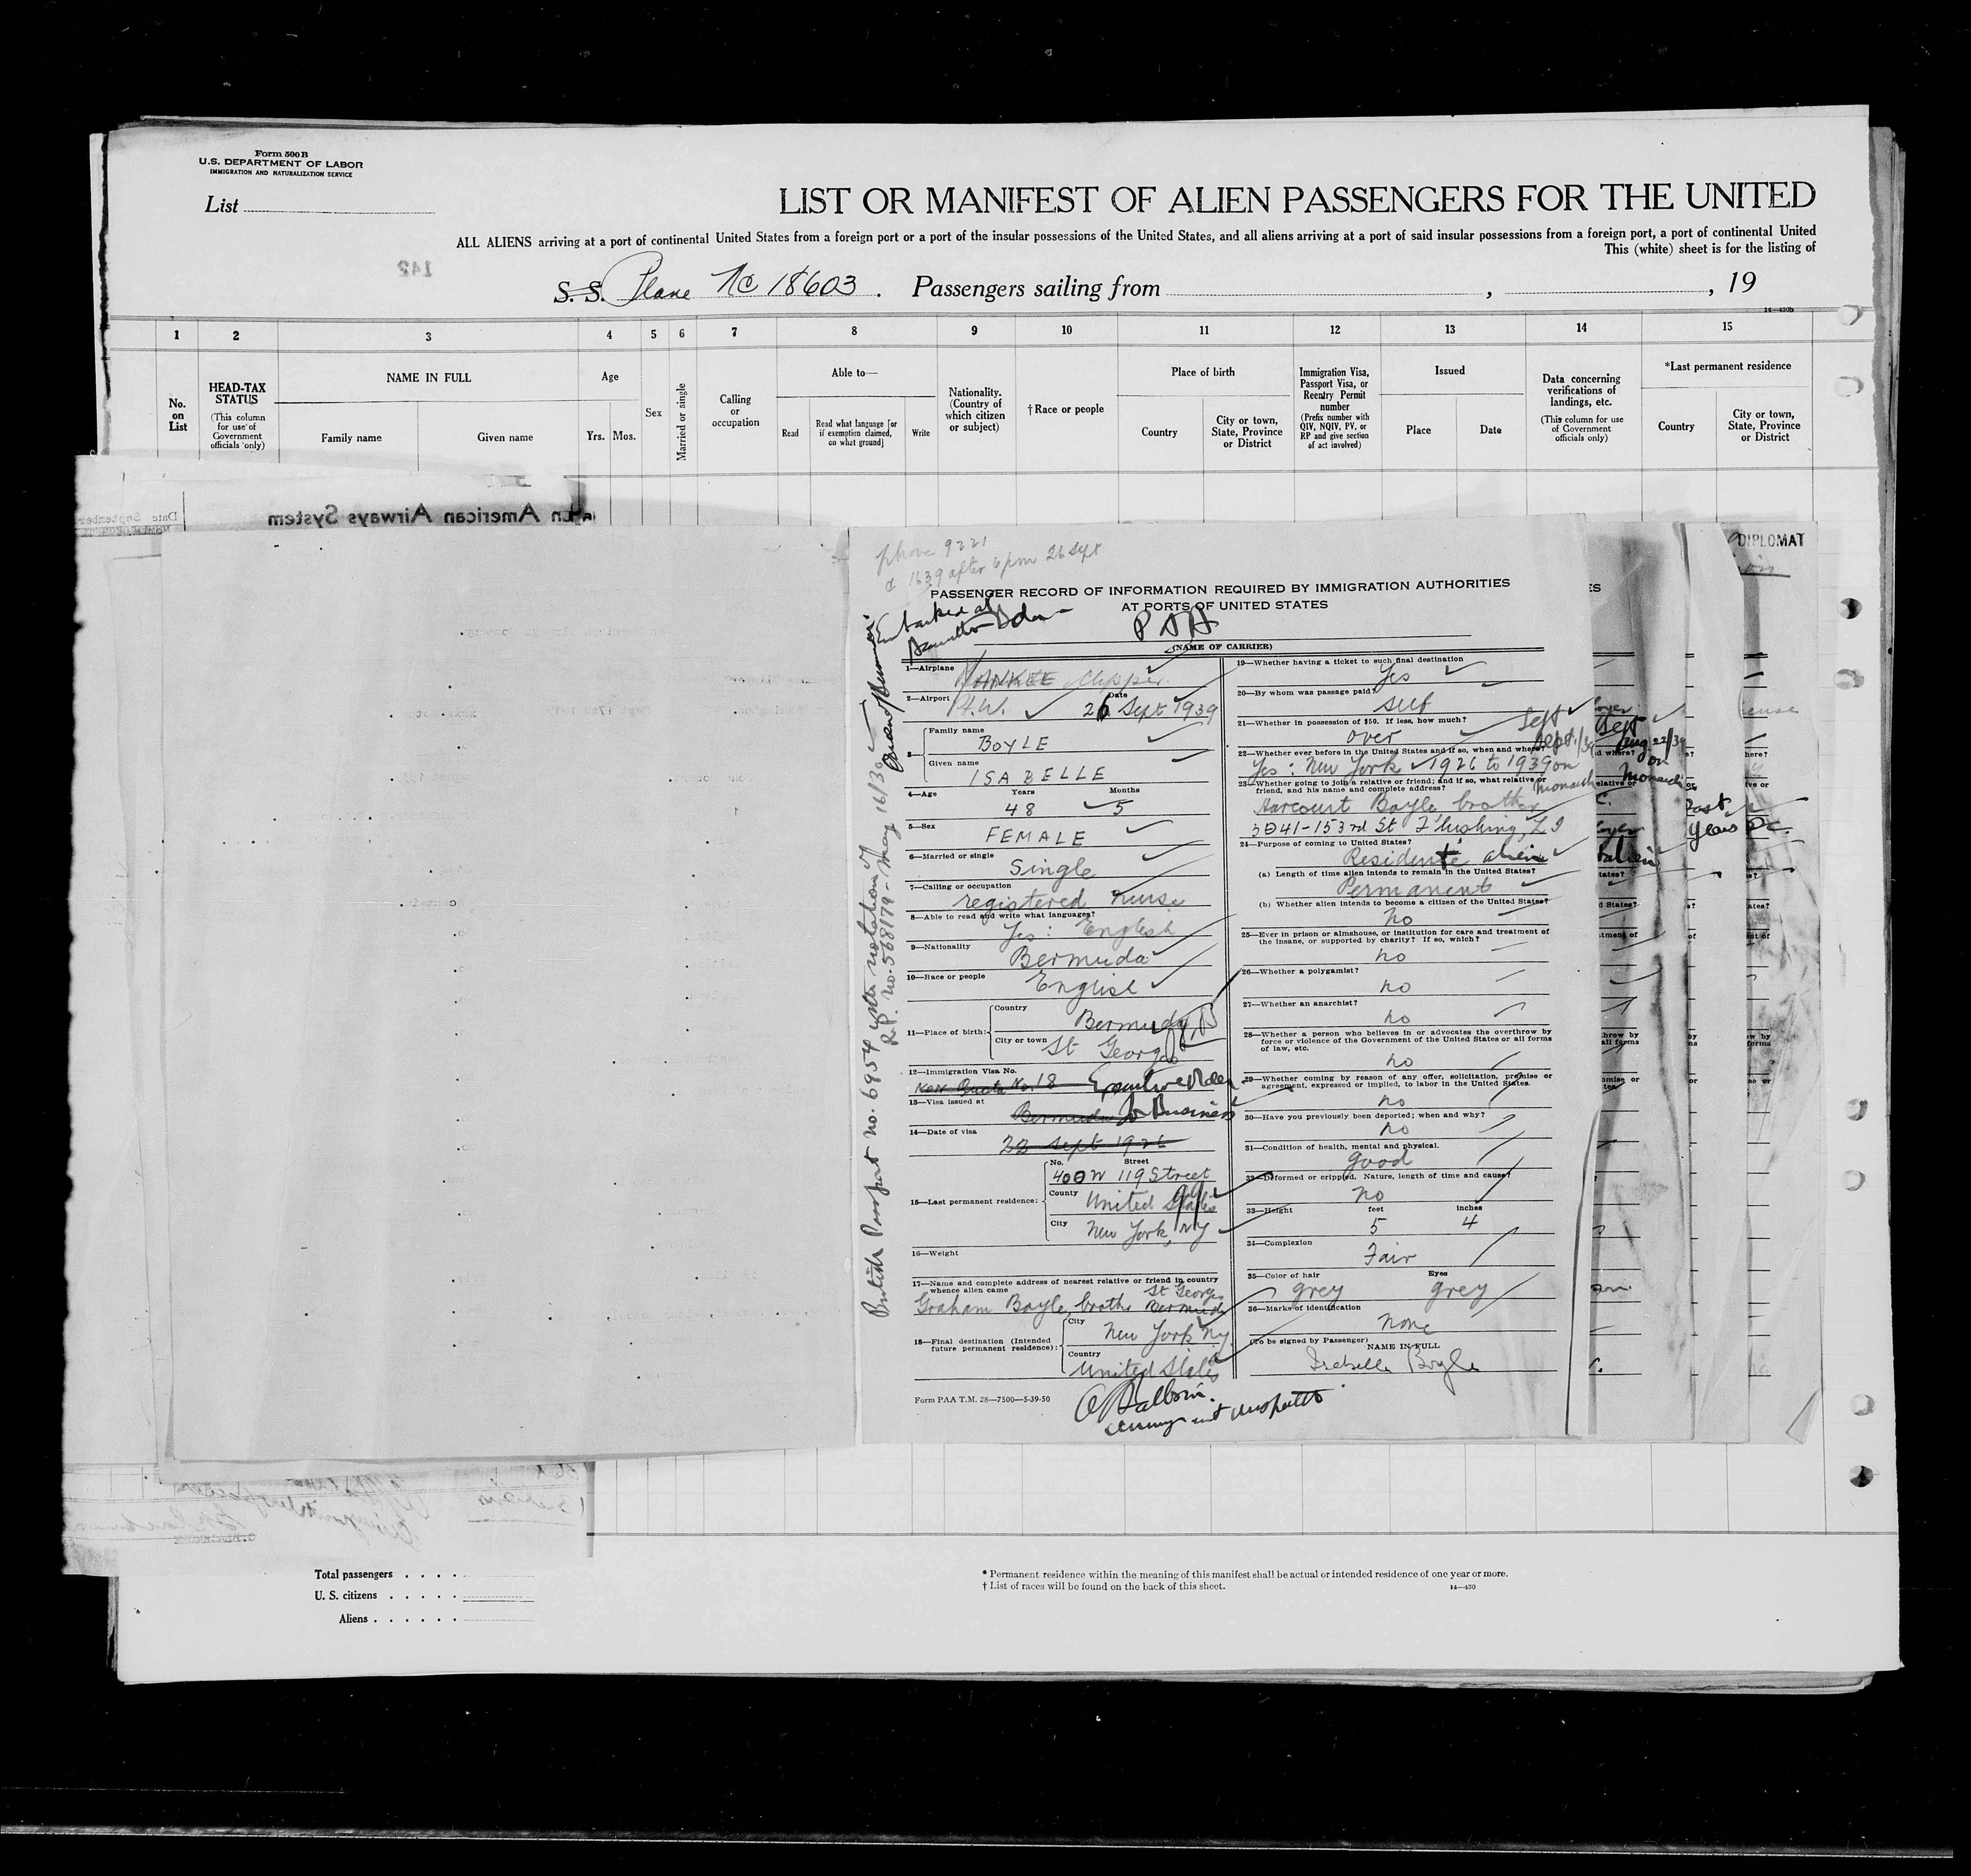 Form 500 B
U.S. DEPARTMENT OF LABOR
IMMIGRATION AND NATURALIZATION SERVICE
List
LIST OR MANIFEST OF ALIEN PASSENGERS FOR THE UNITED
ALL ALIENS arriving at a port of continental United States from a foreign port or a port of the insular possessions of the United States, and all aliens arriving at a port of said insular possessions from a foreign port, a port of continental United
This (white) sheet is for the listing of
142
S. S. Plane NC 18603. Passengers sailing from , , 19
14—430b
1 2 3 4 5 6 7 8 9 10 11 12 13 14 15
No. on List
HEAD-TAX STATUS
(This column for use of Government officials only)
NAME IN FULL
Family name
Given name
Age
Yrs. Mos.
Sex
Married or single
Calling or occupation
Able to—
Read
Read what language [or if exemption claimed, on what ground]
Write
Nationality. (Country of which citizen or subject)
† Race or people
Place of birth
Country
City or town, State, Province or District
Immigration Visa, Passport Visa, or Reentry Permit number
(Prefix number with QIV, NQIV, PV, or RP and give section of act involved)
Issued
Place
Date
Data concerning verifications of landings, etc.
(This column for use of Government officials only)
*Last permanent residence
Country
City or town, State, Province or District
American Airways System
Date September
DIPLOMAT
phone 9221
& 1639 after 6 pm 26 Sept
PASSENGER RECORD OF INFORMATION REQUIRED BY IMMIGRATION AUTHORITIES
AT PORTS OF UNITED STATES
Embarked at
PAA
(NAME OF CARRIER)
British Passport no. 6954 with notation of
R.P. no. 568179 - May 16/39
1—Airplane YANKEE Clipper
2—Airport P.W. Date 26 Sept 1939
3— Family name BOYLE
Given name ISABELLE
4—Age Years 48 Months 5
5—Sex FEMALE
6—Married or single Single
7—Calling or occupation registered nurse
8—Able to read and write what languages? Yes: English
9—Nationality Bermuda
10—Race or people English
11—Place of birth: Country Bermuda
City or town St Georges
12—Immigration Visa No. Non Quota No. 18 Executive Order
13—Visa issued at Bermuda for Business
14—Date of visa 22 Sept 1926
15—Last permanent residence: No. Street 400 W 119 Street
County United States
City New York, NY
16—Weight
17—Name and complete address of nearest relative or friend in country whence alien came St Georges
Graham Boyle, brother Bermuda
18—Final destination (Intended future permanent residence): City New York NY
Country United States
Form PAA T.M. 28—7500—5-39-50
19—Whether having a ticket to such final destination Yes
20—By whom was passage paid? self
21—Whether in possession of $50. If less, how much? over
22—Whether ever before in the United States and if so, when and where?
Yes: New York 1926 to 1939 on
23—Whether going to join a relative or friend; and if so, what relative or friend, and his name and complete address? Monarch
Harcourt Boyle, brother
3041-153rd St Flushing, L I
24—Purpose of coming to United States?
Resident alien
(a) Length of time alien intends to remain in the United States?
Permanent
(b) Whether alien intends to become a citizen of the United States?
no
25—Ever in prison or almshouse, or institution for care and treatment of the insane, or supported by charity? If so, which?
no
26—Whether a polygamist?
no
27—Whether an anarchist?
no
28—Whether a person who believes in or advocates the overthrow by force or violence of the Government of the United States or all forms of law, etc.
no
29—Whether coming by reason of any offer, solicitation, promise or agreement, expressed or implied, to labor in the United States.
no
30—Have you previously been deported; when and why?
no
31—Condition of health, mental and physical.
good
32—Deformed or crippled. Nature, length of time and cause?
no
33—Height feet 5 inches 4
34—Complexion Fair
35—Color of hair grey Eyes grey
36—Marks of identification
none
(To be signed by Passenger)
NAME IN FULL
Isabelle Boyle
Sept
Aug 22/39
on
Monarch
alien
past
years
Total passengers
U. S. citizens
Aliens
* Permanent residence within the meaning of this manifest shall be actual or intended residence of one year or more.
† List of races will be found on the back of this sheet.
14—430